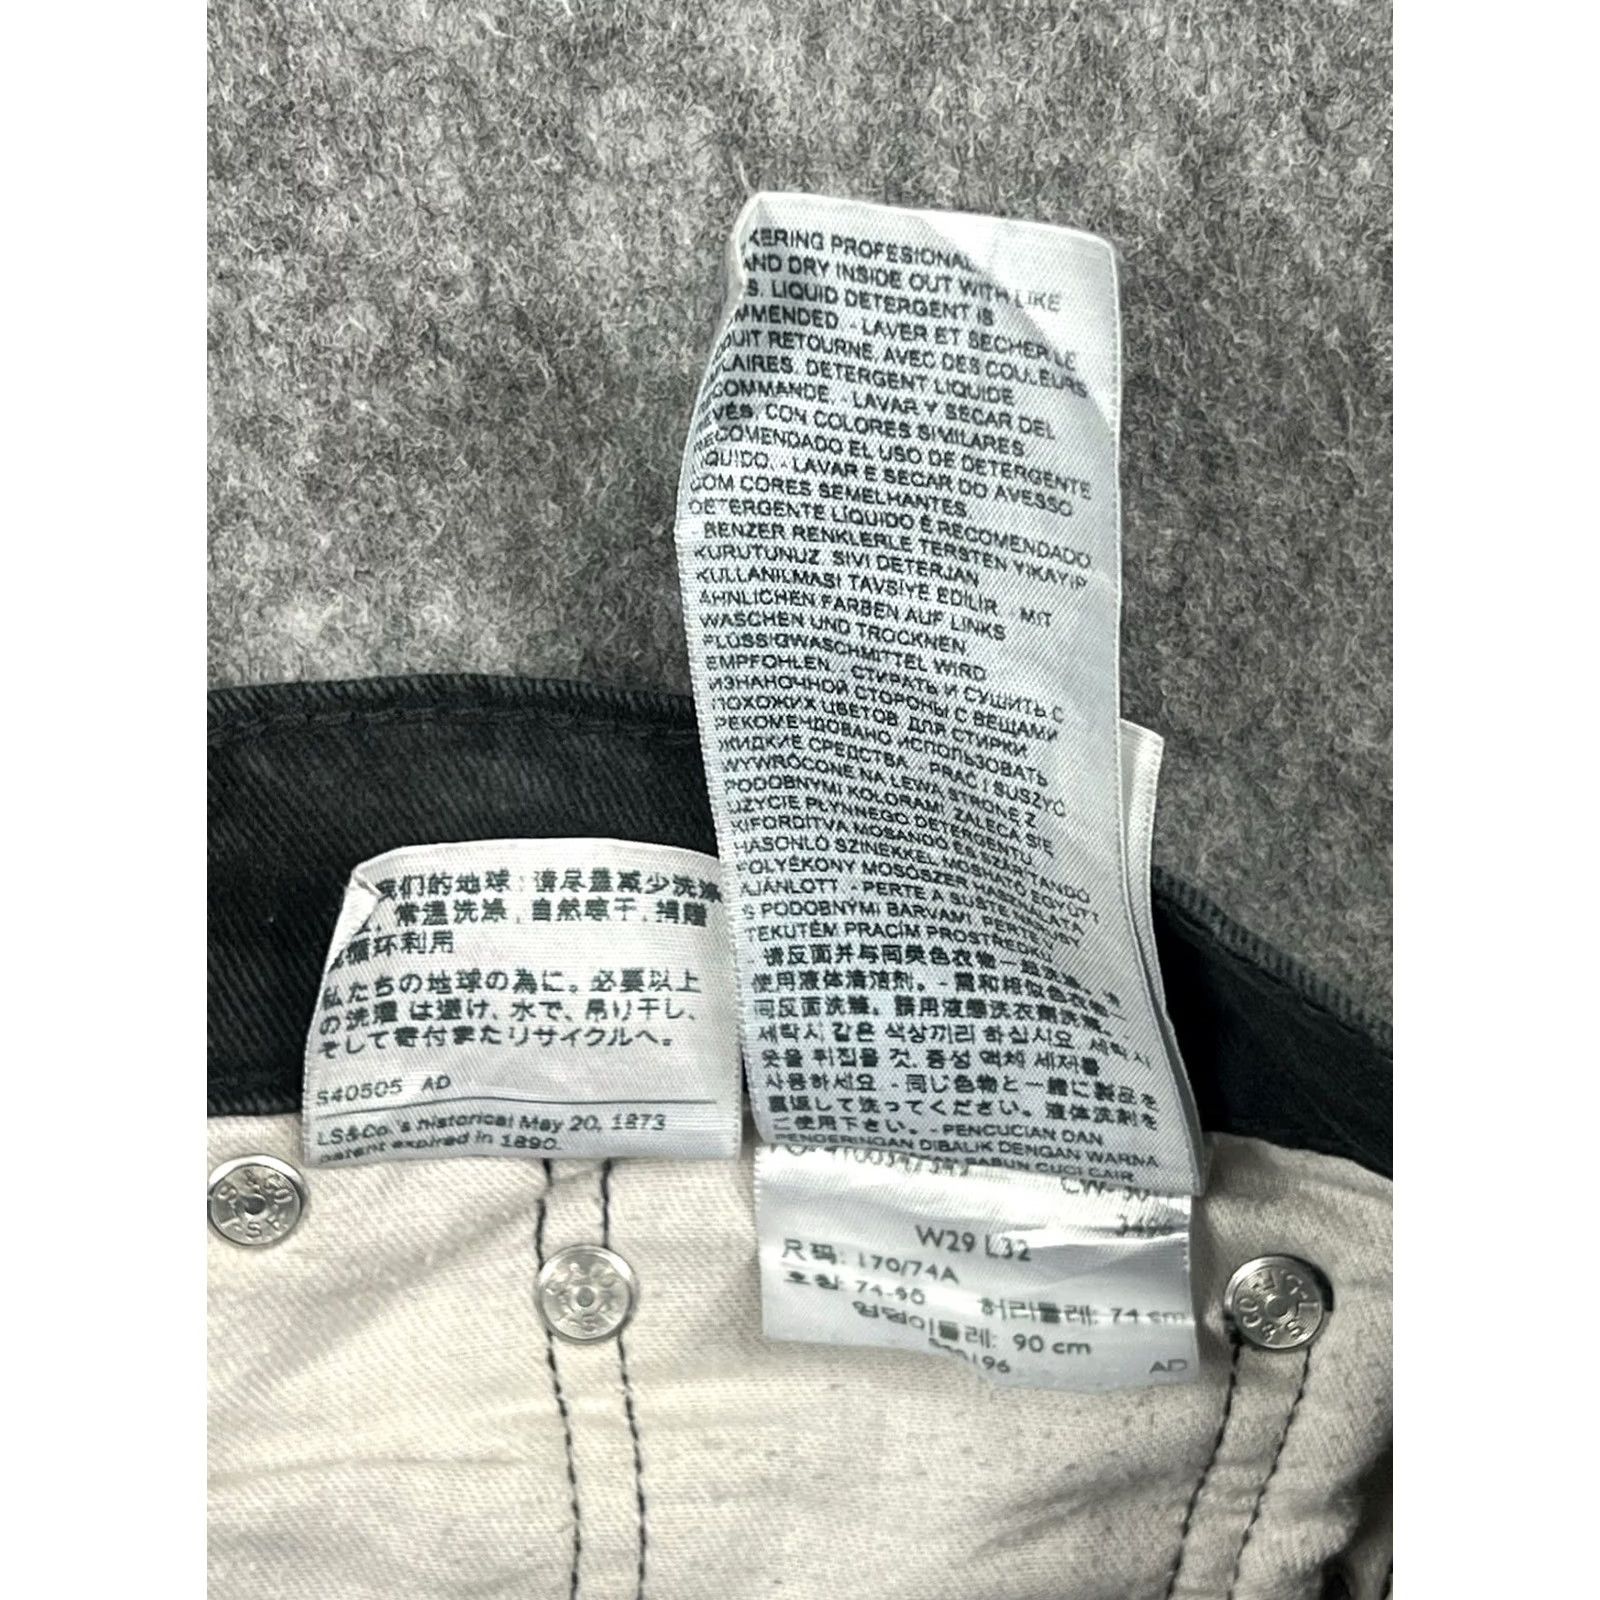 我们的地球:请尽量减少洗涤
常温洗涤,自然晾干,捐赠
循环利用
私たちの地球の為に。必要以上
の洗濯は避け、水で、吊り干し、
そして寄付またリサイクルへ。
S40505 AD
LS&Co.'s historical May 20, 1873
patent expired in 1890.
KERING PROFESIONAL
AND DRY INSIDE OUT WITH LIKE
S. LIQUID DETERGENT IS
MMENDED. - LAVER ET SECHER LE
DUIT RETOURNE, AVEC DES COULEURS
LAIRES. DETERGENT LIQUIDE
COMMANDE. - LAVAR Y SECAR DEL
EVÉS, CON COLORES SIMILARES.
RECOMENDADO EL USO DE DETERGENTE
IQUIDO. - LAVAR E SECAR DO AVESSO
COM CORES SEMELHANTES.
DETERGENTE LÍQUIDO É RECOMENDADO
- BENZER RENKLERLE TERSTEN YIKAYIP
KURUTUNUZ. SIVI DETERJAN
KULLANILMASI TAVSİYE EDİLİR - MIT
ÄHNLICHEN FARBEN AUF LINKS
WASCHEN UND TROCKNEN
FLÜSSIGWASCHMITTEL WIRD
EMPFOHLEN - СТИРАТЬ И СУШИТЬ С
ИЗНАНОЧНОЙ СТОРОНЫ С ВЕЩАМИ
ПОХОЖИХ ЦВЕТОВ. ДЛЯ СТИРКИ
РЕКОМЕНДОВАНО ИСПОЛЬЗОВАТЬ
ЖИДКИЕ СРЕДСТВА - PRAĆ I SUSZYĆ
WYWRÓCONE NA LEWĄ STRONĘ Z
PODOBNYMI KOLORAMI ZALECA SIĘ
UŻYCIE PŁYNNEGO DETERGENTU
KIFORDÍTVA MOSANDÓ ÉS SZÁRÍTANDÓ
HASONLÓ SZÍNEKKEL MOSHATÓ EGYÜTT
FOLYÉKONY MOSÓSZER HASZNÁLATA
AJÁNLOTT - PERTE A SUŠTE NARUBY
S PODOBNÝMI BARVAMI. PERTE V
TEKUTÉM PRACÍM PROSTŘEDKU
- 请反面并与同类色衣物一起洗涤。
使用液体清洁剂。- 需和相似色衣物
同反面洗滌。請用液態洗衣劑洗滌。
세탁시 같은 색상끼리 하십시요 세탁시
옷을 뒤집을 것. 중성 액체 세제를
사용하세요 - 同じ色物と一緒に製品を
裏返して洗ってください。液体洗剤を
ご使用下さい。- PENCUCIAN DAN
PENGERINGAN DIBALIK DENGAN WARNA
SABUN CUCI CAIR
W29 L32
尺码: 170/74A
호칭: 74-90 허리둘레: 74 cm
엉덩이둘레: 90 cm
AD